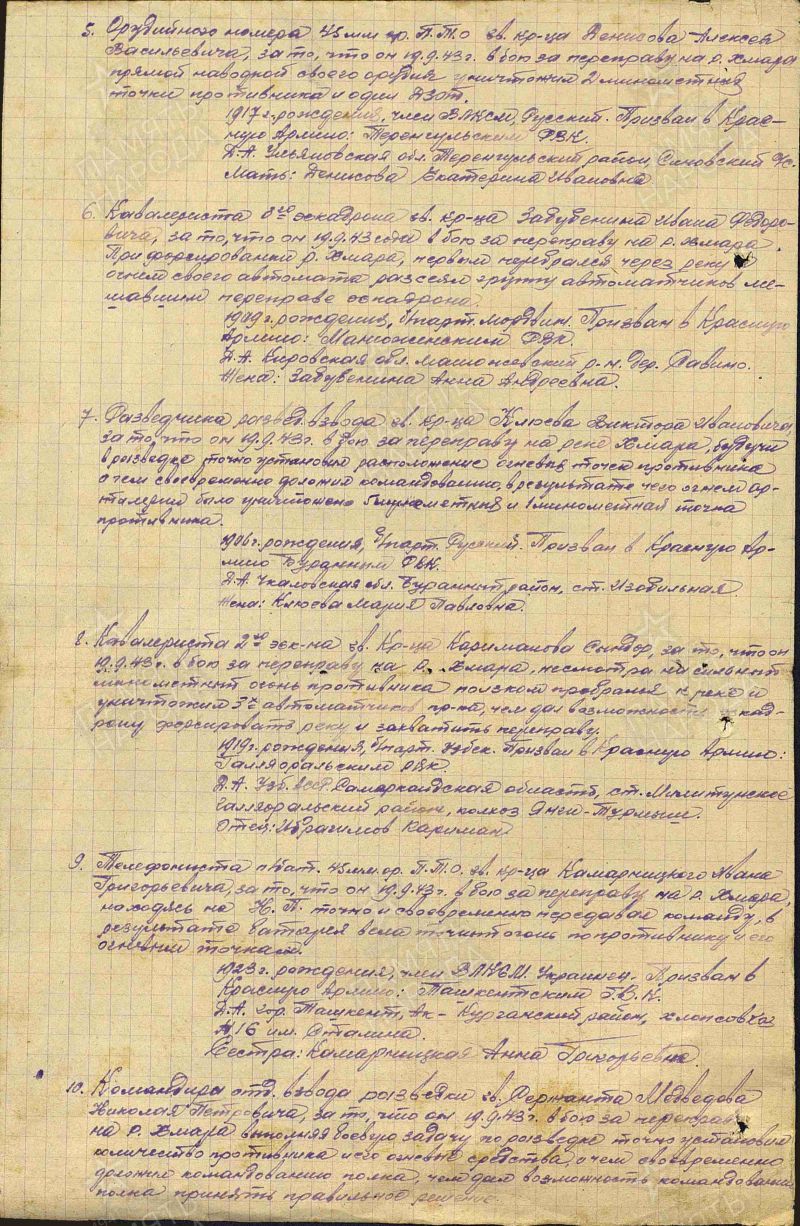 5. Орудийного номера 45 мм ор. П.Т.О. гв. кр-ца Денисова Алексея
Васильевича, за то, что он 19.9.43 г. в бою за переправу на р. Хмара
прямой наводкой своего орудия уничтожил 2 минометные
точки противника и один Дзот.
1917 г. рождения, член ВЛКСМ, Русский. Призван в Крас-
ную Армию: Теренгульским РВК.
Д.А. Ульяновская обл. Теренгульский район,
Мать: Денисова Екатерина Ивановна
6. Кавалериста эскадрона гв. кр-ца Забубенина Ивана Федоро-
вича, за то, что он 19.9.43 года в бою за переправу на р. Хмара.
При форсировании р. Хмара, первым перебрался через реку и
огнем своего автомата рассеял группу автоматчиков ме-
шавшим переправе эскадрона.
1909 г. рождения, б/парт. мордвин. Призван в Красную
Армию: РВК.
Д.А. Кировская обл. р-н. дер. Савино.
Жена: Забубенина Анна Андреевна.
7. Разведчика развед. взвода гв. кр-ца Клюева Виктора Ивановича,
за то, что он 19.9.43 г. в бою за переправу на реке Хмара, будучи
в разведке точно установил расположение огневых точек противника
о чем своевременно доложил командованию, в результате чего огнем ар-
тилерии было уничтожено пулеметная и 1 минометная точка
противника.
1906 г. рождения, б/парт. Русский. Призван в Красную Ар-
мию Буранным РВК.
Д.А. Чкаловская обл. Буранный район, ст. Изобильная
Жена: Клюева Мария Павловна.
8. Кавалериста 2го эск-на гв. Кр-ца Кариманова за то, что он
19.9.43 г. в бою за переправу на р. Хмара, несмотря на сильный
минометный огонь противника ползком пробрался к реке и
уничтожил 3х автоматчиков пр-ка, чем дал возможность эскад-
рону форсировать реку и захватить переправу.
1919 г. рождения, б/парт. Узбек. Призван в Красную Армию:
Галляоральским РВК.
Д.А. Узб. ССР Самаркандская область, ст.
Галляоральский район, колхоз
Отец: Ибрагимов Кариман.
9. Телефониста п/бат. 45 мм. ор. П.Т.О. гв. кр-ца Камарницкого Ивана
Григорьевича, за то, что он 19.9.43 г. в бою за переправу на р. Хмара,
находясь на Н.П. точно и своевременно передавал команду, в
результате батарея вела точный огонь по противнику и его
огневым точкам.
1923 г. рождения, член ВЛКСМ. Украинец. Призван в
Красную Армию: Ташкентским Г.В.К.
Д.А. гор. Ташкент, Ак-Курганский район, хлопсовхоз
№ 16 им. Сталина.
Сестра: Камарницкая Анна Григорьевна.
10. Командира отд. взвода разведки гв. Сержанта Медведова
Николая Петровича, за то, что он 19.9.43 г. в бою за переправу
на р. Хмара выполняя боевую задачу по разведке точно установил
количество противника и его огневые средства, о чем своевременно
доложил командованию полка, чем дал возможность командованию
полка принять правильное решение.
ПАМЯТЬ НАРОДА